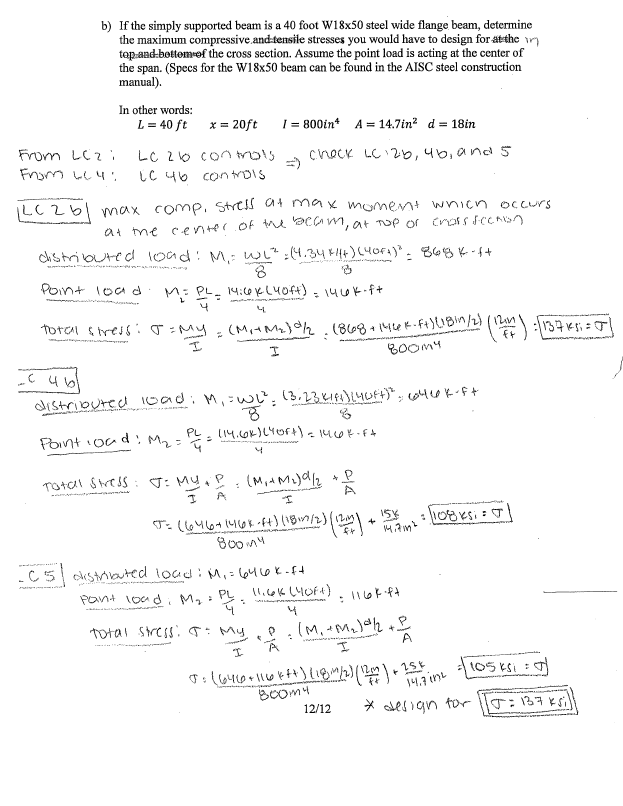 b) If the simply supported beam is a 40 foot W18x50 steel wide flange beam, determine
the maximum compressive and tensile stresses you would have to design for at the in
top and bottom of the cross section. Assume the point load is acting at the center of
the span. (Specs for the W18x50 beam can be found in the AISC steel construction
manual).
In other words:
L = 40 ft x = 20ft I = 800in⁴ A = 14.7in² d = 18in
From LC2: LC 2b controls ⇒ check LC 2b, 4b, and 5
From LC4: LC 4b controls
LC 2b max comp. stress at max moment which occurs
at the center of the beam, at top of cross section
distributed load: M₁ = WL²/8 = (4.34 k/ft)(40ft)²/8 = 868 k-ft
Point load M₂ = PL/4 = 14.6k(40ft)/4 = 146k-ft
Total stress: σ = My/I = (M₁+M₂)d/2/I = (868+146k-ft)(18in/2)/800in⁴ (12in/ft) = 137ksi = σ
LC 4b
distributed load: M₁ = WL²/8 = (3.23k/ft)(40ft)²/8 = 646k-ft
Point load: M₂ = PL/4 = (14.6k)(40ft)/4 = 146k-ft
Total Stress: σ = My/I + P/A = (M₁+M₂)d/2/I + P/A
σ = (646+146k-ft)(18in/2)/800in⁴ (12in/ft) + 15k/14.7in² = 108ksi = σ
LC5 distributed load: M₁ = 646k-ft
Point load, M₂ = PL/4 = 11.6k(40ft)/4 = 116k-ft
Total stress: σ = My/I + P/A = (M₁+M₂)d/2/I + P/A
σ = (646+116k-ft)(18in/2)/800in⁴ (12in/ft) + 25k/14.7in² = 105ksi = σ
12/12 * design for σ = 137ksi